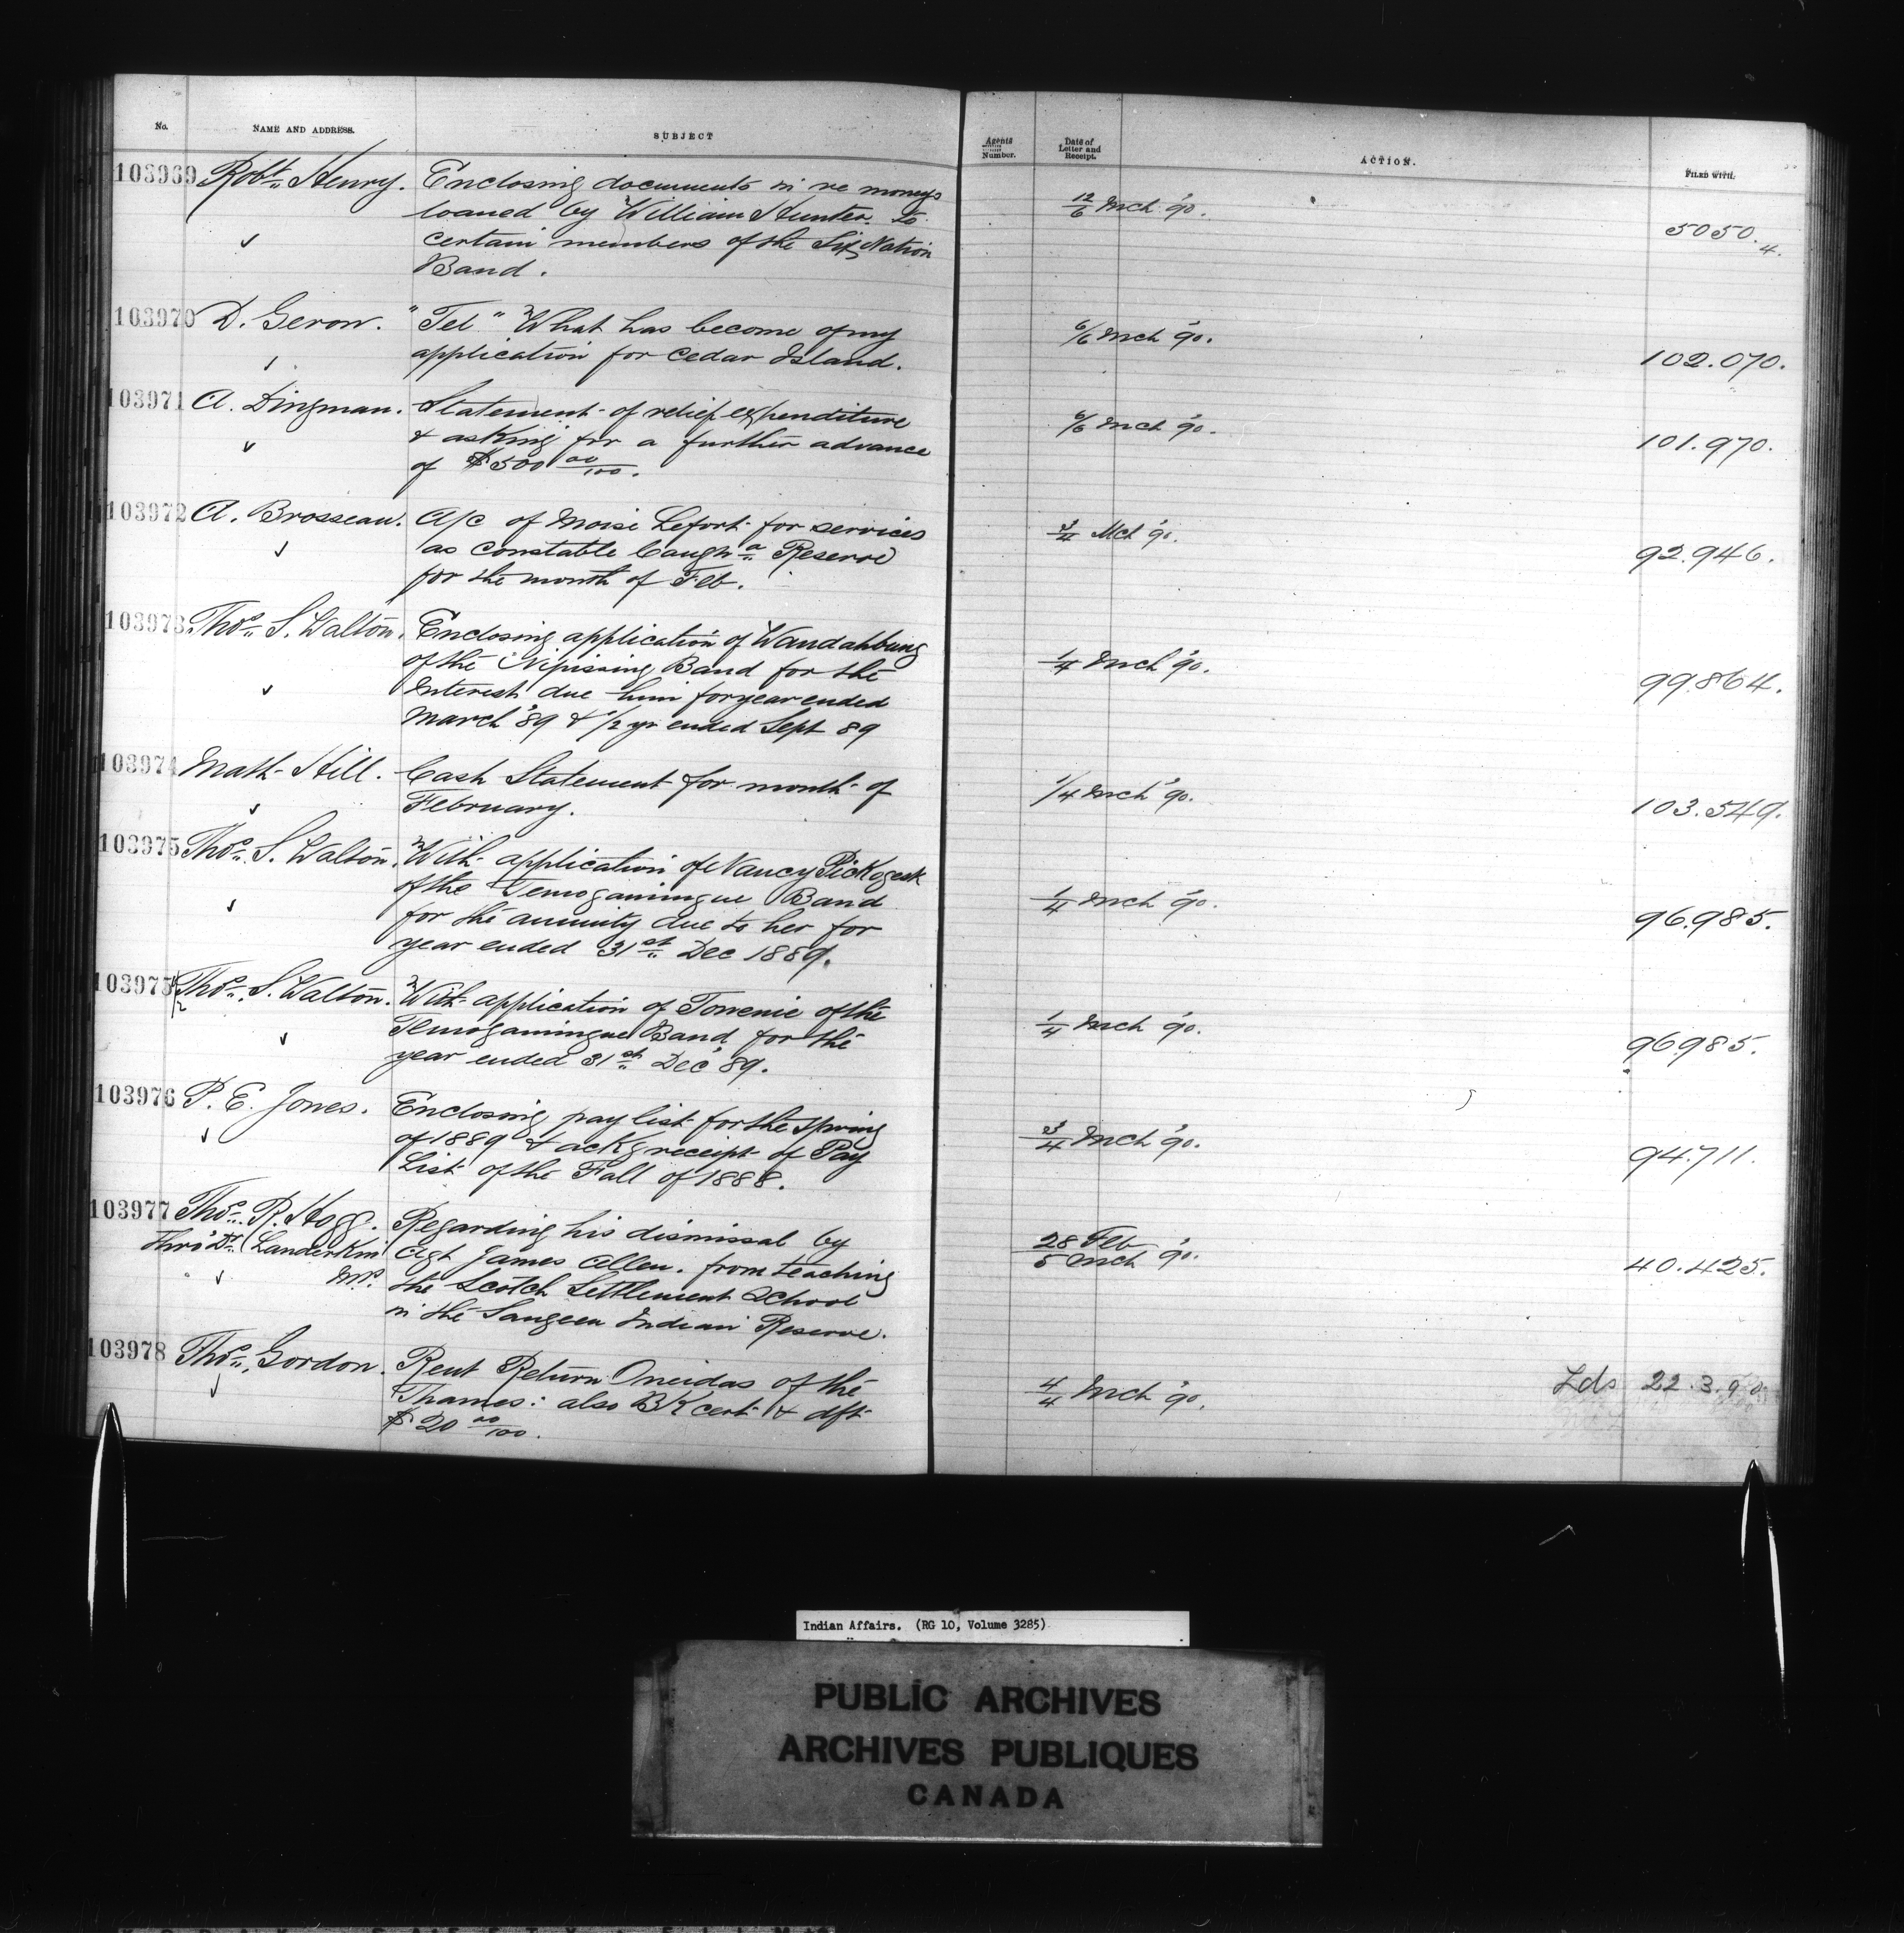 No.
NAME AND ADDRESS.
SUBJECT
Agents Number.
Date of Letter and Receipt.
ACTION.
FILED WITH.
103969 Robt. Henry. Enclosing documents in re moneys
loaned by William Hunter to
certain members of the Six Nation
Band.
12/6 Mch '90.
5050.4.
103970 D. Geron. "Tel" What has become of my
application for Cedar Island.
6/6 Mch '90.
102.070.
103971 A. Dingman. Statement of relief expenditure
& asking for a further advance
of $500 00/100.
6/6 Mch '90.
101.970.
103972 A. Brosseau. A/c of Moise Lefort for services
as constable Caughn a Reserve
for the month of Feb.
3/4 Mch '90.
92.946.
103973 Thos. S. Walton. Enclosing application of Wandahbung
of the Nipissing Band for the
Interest due him for year ended
March '89 & 1/2 yr ended Sept 89
1/4 Mch '90.
99.864.
103974 Math Hill. Cash Statement for month of
February.
1/4 Mch '90.
103.549.
103975 Thos. S. Walton. With application of Nancy Pickogeek
of the Temogamingue Band
for the annuity due to her for
year ended 31st Dec 1889.
1/4 Mch '90.
96.985.
103975 1/2 Thos. S. Walton. With application of Towenie of the
Temogamingue Band for the
year ended 31st Dec '89.
1/4 Mch '90.
96.985.
103976 P. E. Jones. Enclosing pay list for the spring
of 1889 & ackg receipt of Pay
List of the Fall of 1888.
3/4 Mch '90.
94.711.
103977 Thos. R. Hogg. Regarding his dismissal by
thro' Dr. Landerkin Agt James Allen. from teaching
M.P. the Scotch Settlement School
in the Saugeen Indian Reserve.
28 Feb
5 Mch '90.
40.425.
103978 Thos. Gordon. Rent Return Oneidas of the
Thames: also BK cert & dft
$20 00/100.
4/4 Mch '90.
Lds 22.3.90
Indian Affairs. (RG 10, Volume 3285)
PUBLIC ARCHIVES
ARCHIVES PUBLIQUES
CANADA